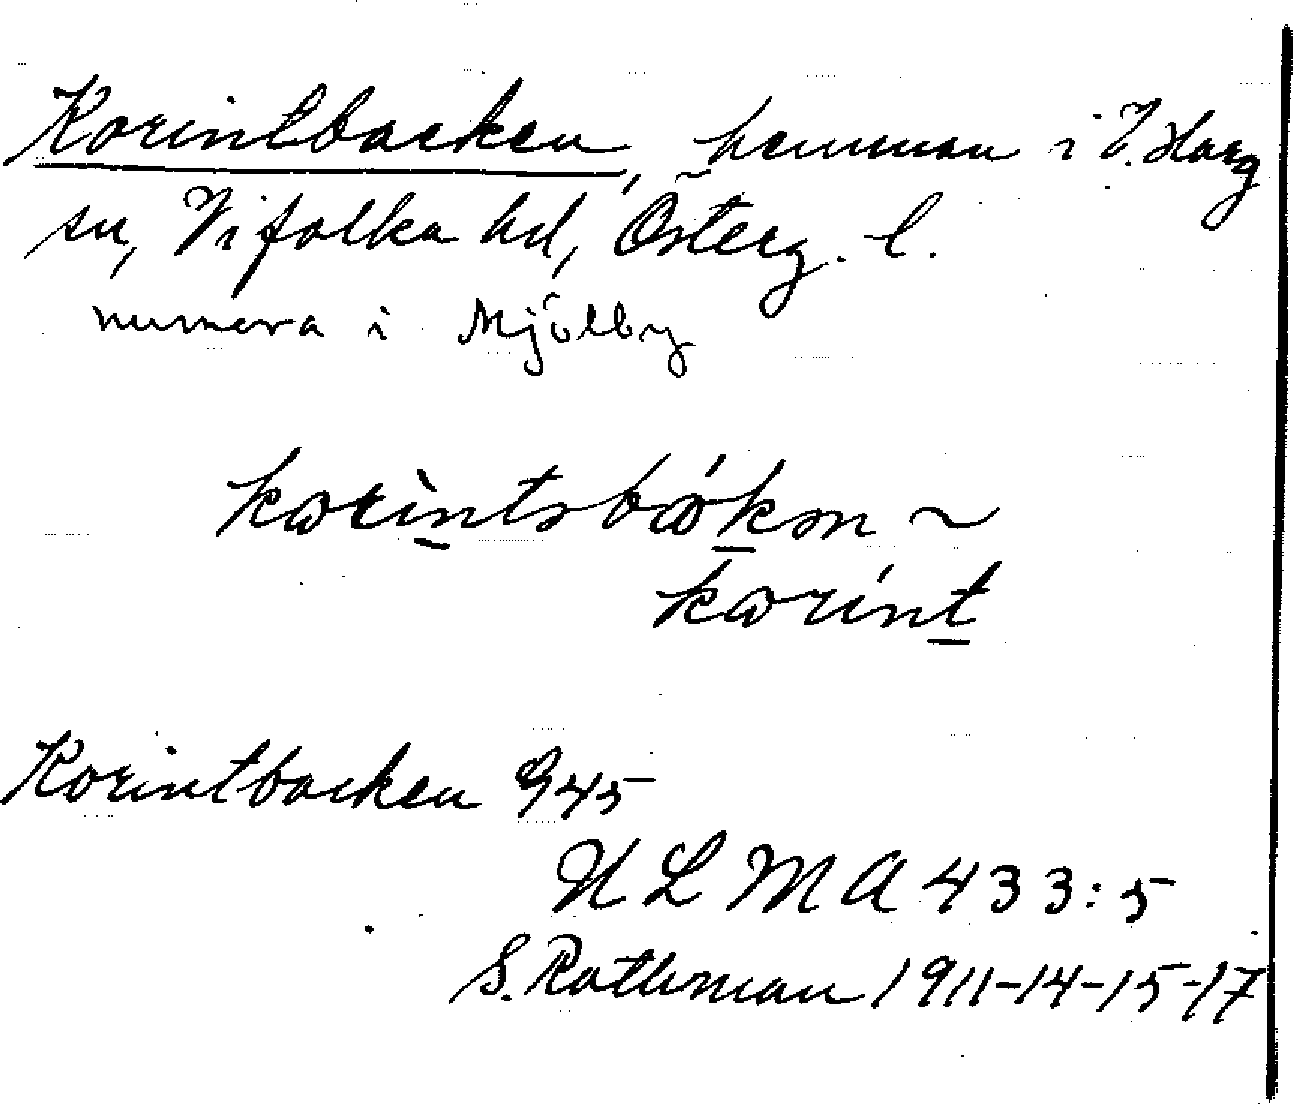 Korintbacken, hemman i V. Harg
sn, Vifolka hd, Österg. l.
numera i Mjölby
korìntsbákən ~
korínt
Korintbacken 945
ULMA 433:5
S. Rothman 1911-14-15-17